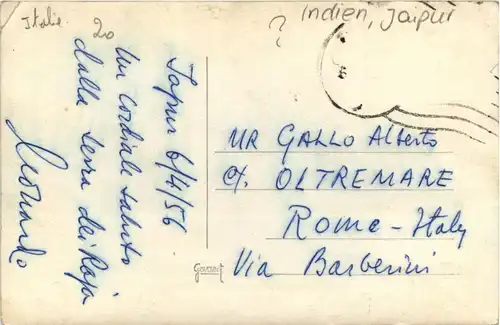 Italie
20
?
Indien, Jaipur
Japur 6/4/56
Un cordiale saluto
dalla terra dei Raja
Leonardo
MR GALLO Alberto
c/. OLTREMARE
Rome - Italy
Via Barberini
Gevaert